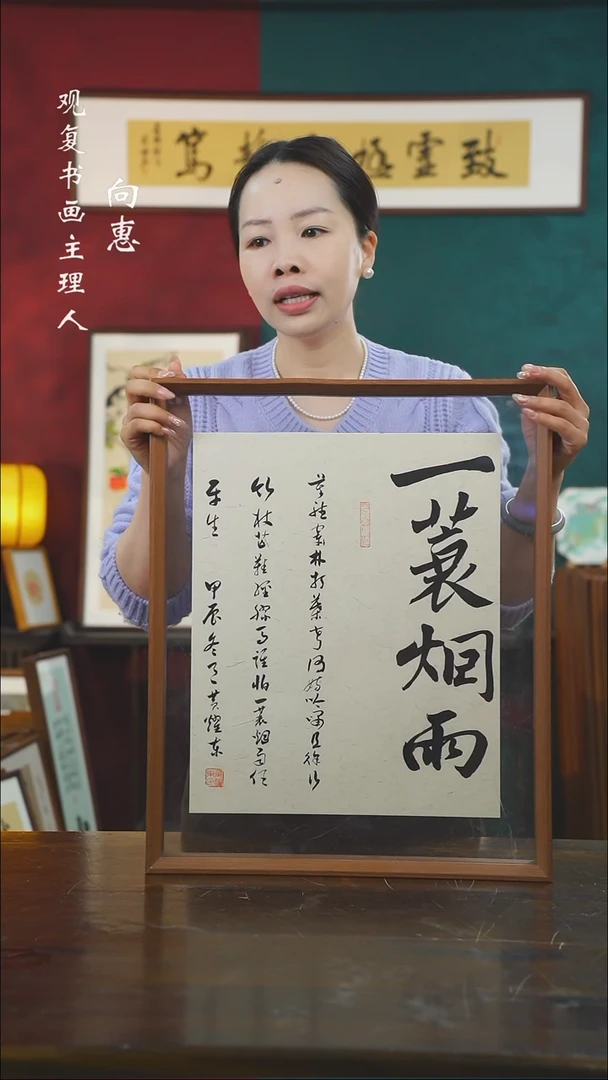 观复书画主理人
向惠
致虚极 笃
一蓑烟雨
莫听穿林打叶声何妨吟啸且徐行
竹杖芒鞋轻胜马谁怕一蓑烟雨任
平生 甲辰冬月黄耀东